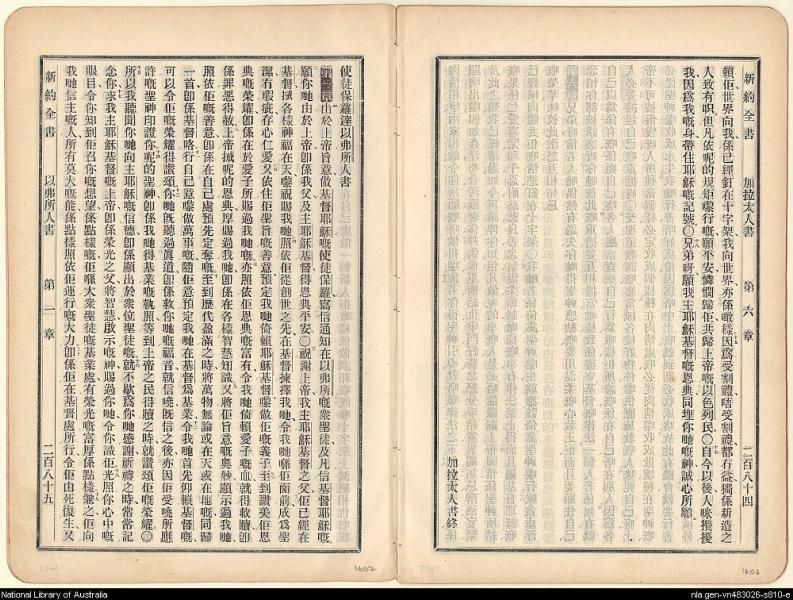 新約全書 加拉太人書 第六章 二百八十四
賴佢世界向我係已經釘在十字架我向世界亦係噉樣因爲受割禮唔受割禮都冇益獨係新造之
人致有呮但凡依呢的規矩嚟行嘅願平安憐憫歸佢共歸上帝嘅以色列民〇自今以後人咪攪擾
我因爲我嘅身帶住耶穌嘅記號〇兄弟呀願我主耶穌基督嘅恩典同埋你哋嘅神誠心所願
加拉太人書終
使徒保羅達以弗所人書
由於上帝旨意做基督耶穌嘅使徒保羅寫信通知在以弗所嘅衆聖徒及凡信基督耶穌嘅
願你哋由於上帝卽係我父及主耶穌基督得恩典平安〇祝謝上帝我主耶穌基督之父佢已經在
基督拭各樣神福在天嚟祝賜我哋照依佢從創世之先在基督揀擇我哋令我哋喺佢面前成爲聖
潔冇瑕疵存心仁愛又依住佢聖旨嘅善意預定我哋倚賴耶穌基督嚟做佢嘅義子至到讚美佢恩
典嘅榮耀卽係在於愛子所賜過我哋嘅亦照依佢恩典嘅富有令我哋倚賴愛子嘅血就得救贖卽
係罪惡得赦上帝拭呢的恩典厚賜過我哋卽係在各樣智慧知識又將佢旨意嘅奧妙顯示過我哋
照依佢嘅善意卽係在自己處預先定奪嘅至到歷代盈滿之時將萬物無論或在天或在地嘅同歸
一首卽係基督咯行自己意嚟做萬事嘅隨佢意預定我哋在基督爲基業令我哋首先仰賴基督嘅
可以令佢嘅榮耀得讚頌你哋旣聽過眞道卽係救你哋嘅福音就信曉旣信之後亦因佢受曉所應
許嘅聖神印證你呢的聖神卽係我哋得基業嘅執照等到上帝之民得贖之時就讚頌佢嘅榮耀
所以我聽聞你哋向主耶穌嘅信德卽係顯出於衆位聖徒嘅就不歇爲你哋感謝祈禱之時常常記
念你求我主耶穌基督嘅上帝卽係榮光之父將智慧啟示嘅神賜過你哋令你識佢光照你心中嘅
眼目令你知到佢召你嘅想望係點樣嘅佢喺大衆聖徒嘅基業處有榮光嘅富厚係點樣嘅之佢向
我哋信主嘅人所有莫大嘅能係點樣照依佢運行嘅大力卽係佢在基督處所行令佢由死復生又
新約全書 以弗所人書 第一章 二百八十五
1607
1606
National Library of Australia
nla.gen-vn483026-s810-e